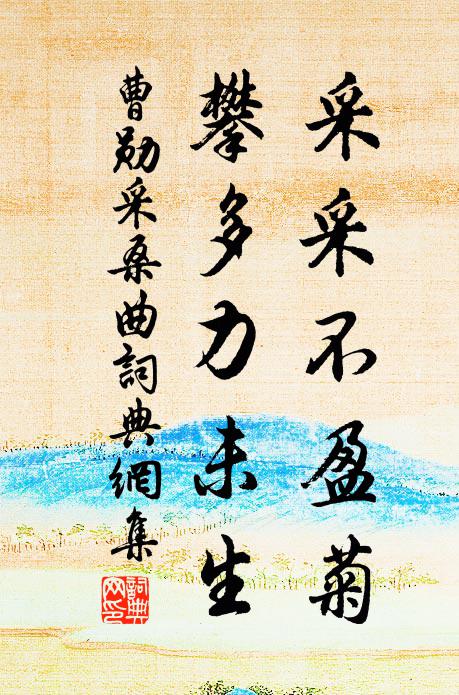 采采不盈菊
攀多力未生
曹勛采桑曲詞典網集
詞典网印